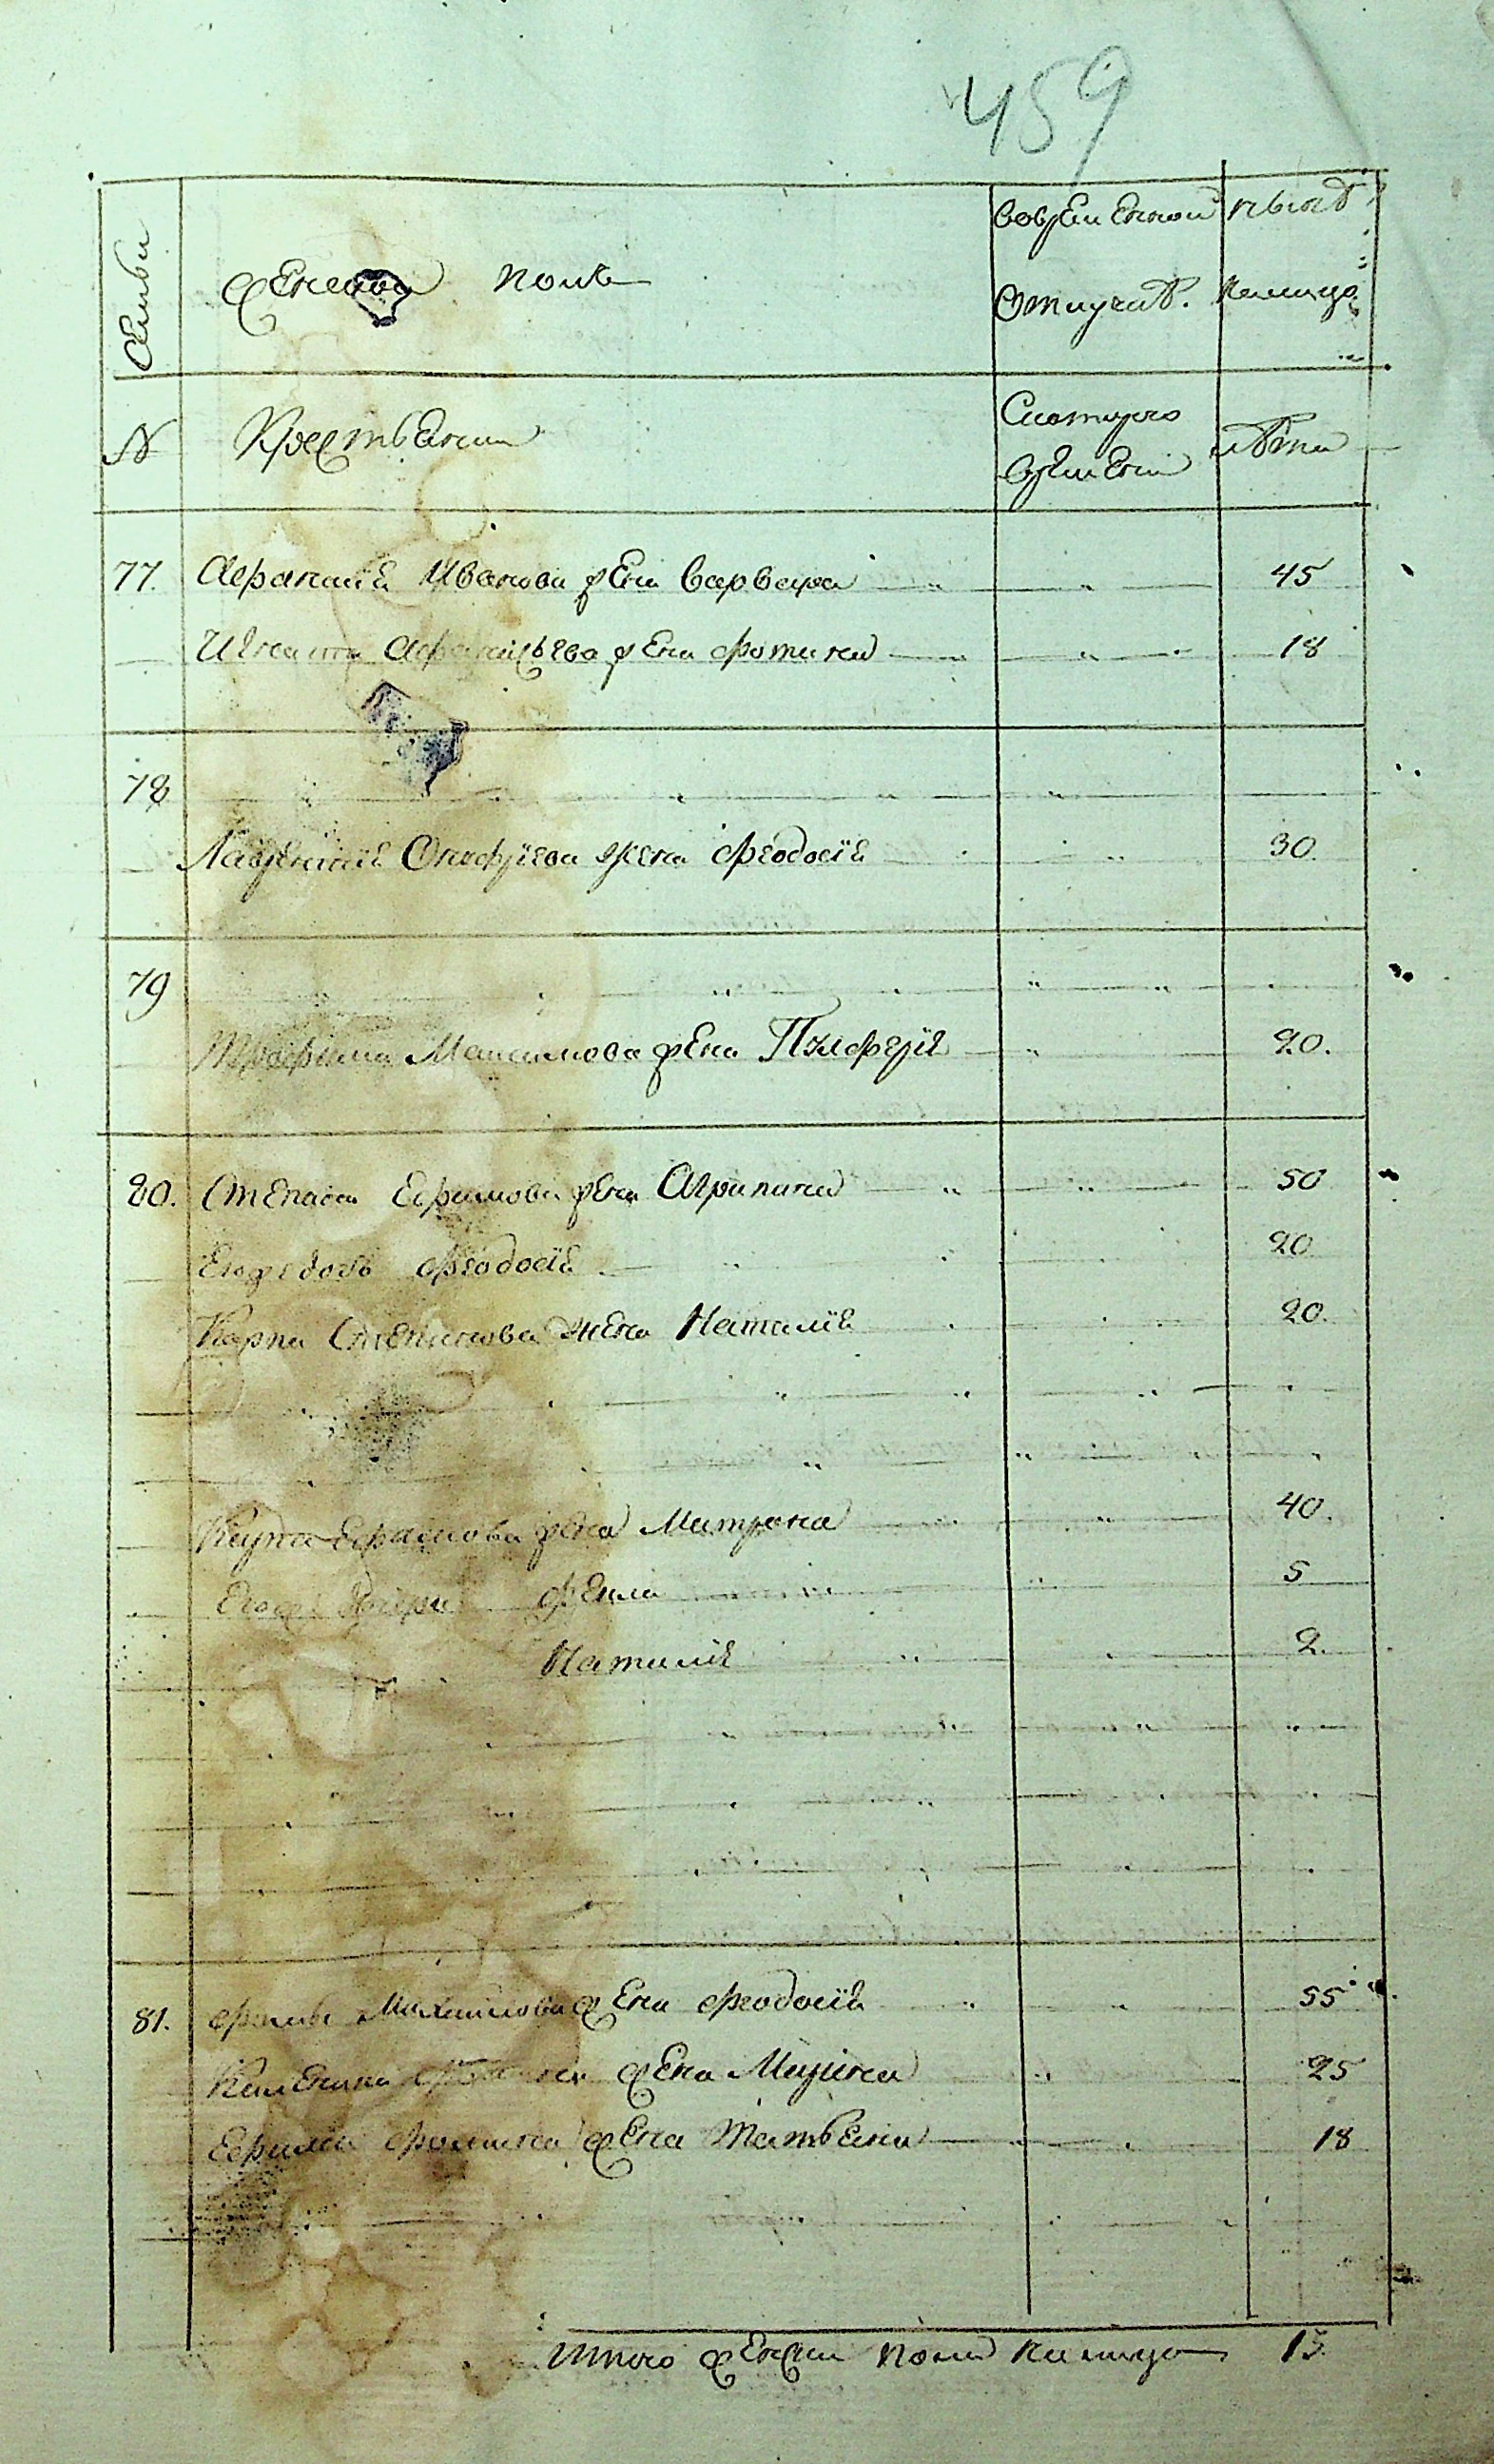 459
Семьи
Женской полъ
Во временной
отлучкѣ.
нынѣ
на лицо
№
Крестьяне
Съ которого
времени
лѣта
77. Афанасія Иванова жена Варвара 45
Игната Афанасьева жена Фотина 18
78
Лаврентія Онофріева жена Феодосія 30.
79
Трофима Максимова жена Пулферія 20.
80. Степана Ефимова жена Агрипина 50
Его же дочь Феодосія 20
Карпа Степанова жена Наталія 20.
Ефимова жена Матрона 40.
Его же дочери Фекла 5
Наталія 2.
81. Фомы Михайлова жена Феодосія 55
Климента Фомина жена Марина 25
Ефима Фомина жена Татьяна 18
Итого женска пола на лицо 13.